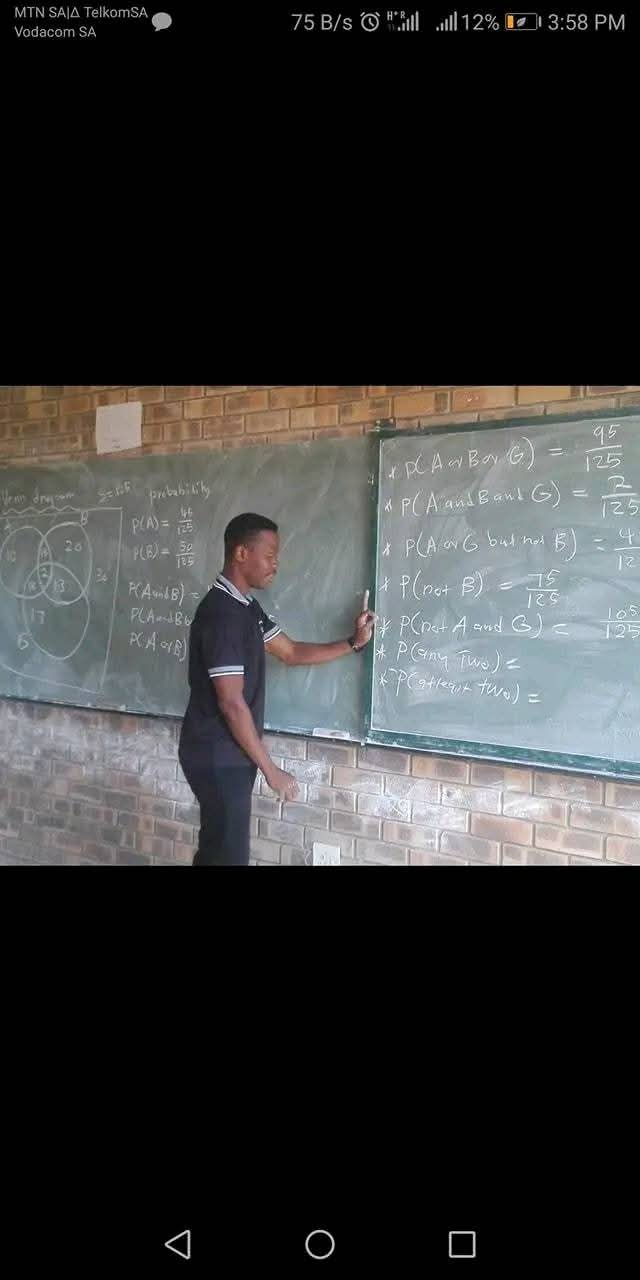 MTN SA|Δ TelkomSA
Vodacom SA
75 B/s H+ R 12% 3:58 PM
Venn diagram S=125 probability
P(A) = 46/125
P(B) = 50/125
P(A and B) =
P(A and B b
P(A or B)
B
20
30
2
13
13
G
* P(A or B or G) = 95/125
* P(A and B and G) = 2/125
* P(A or G but not B) = 4 / 12
* P(not B) = 75/125
* P(not A and G) = 105/125
* P(any Two) =
* P(atleast two) =